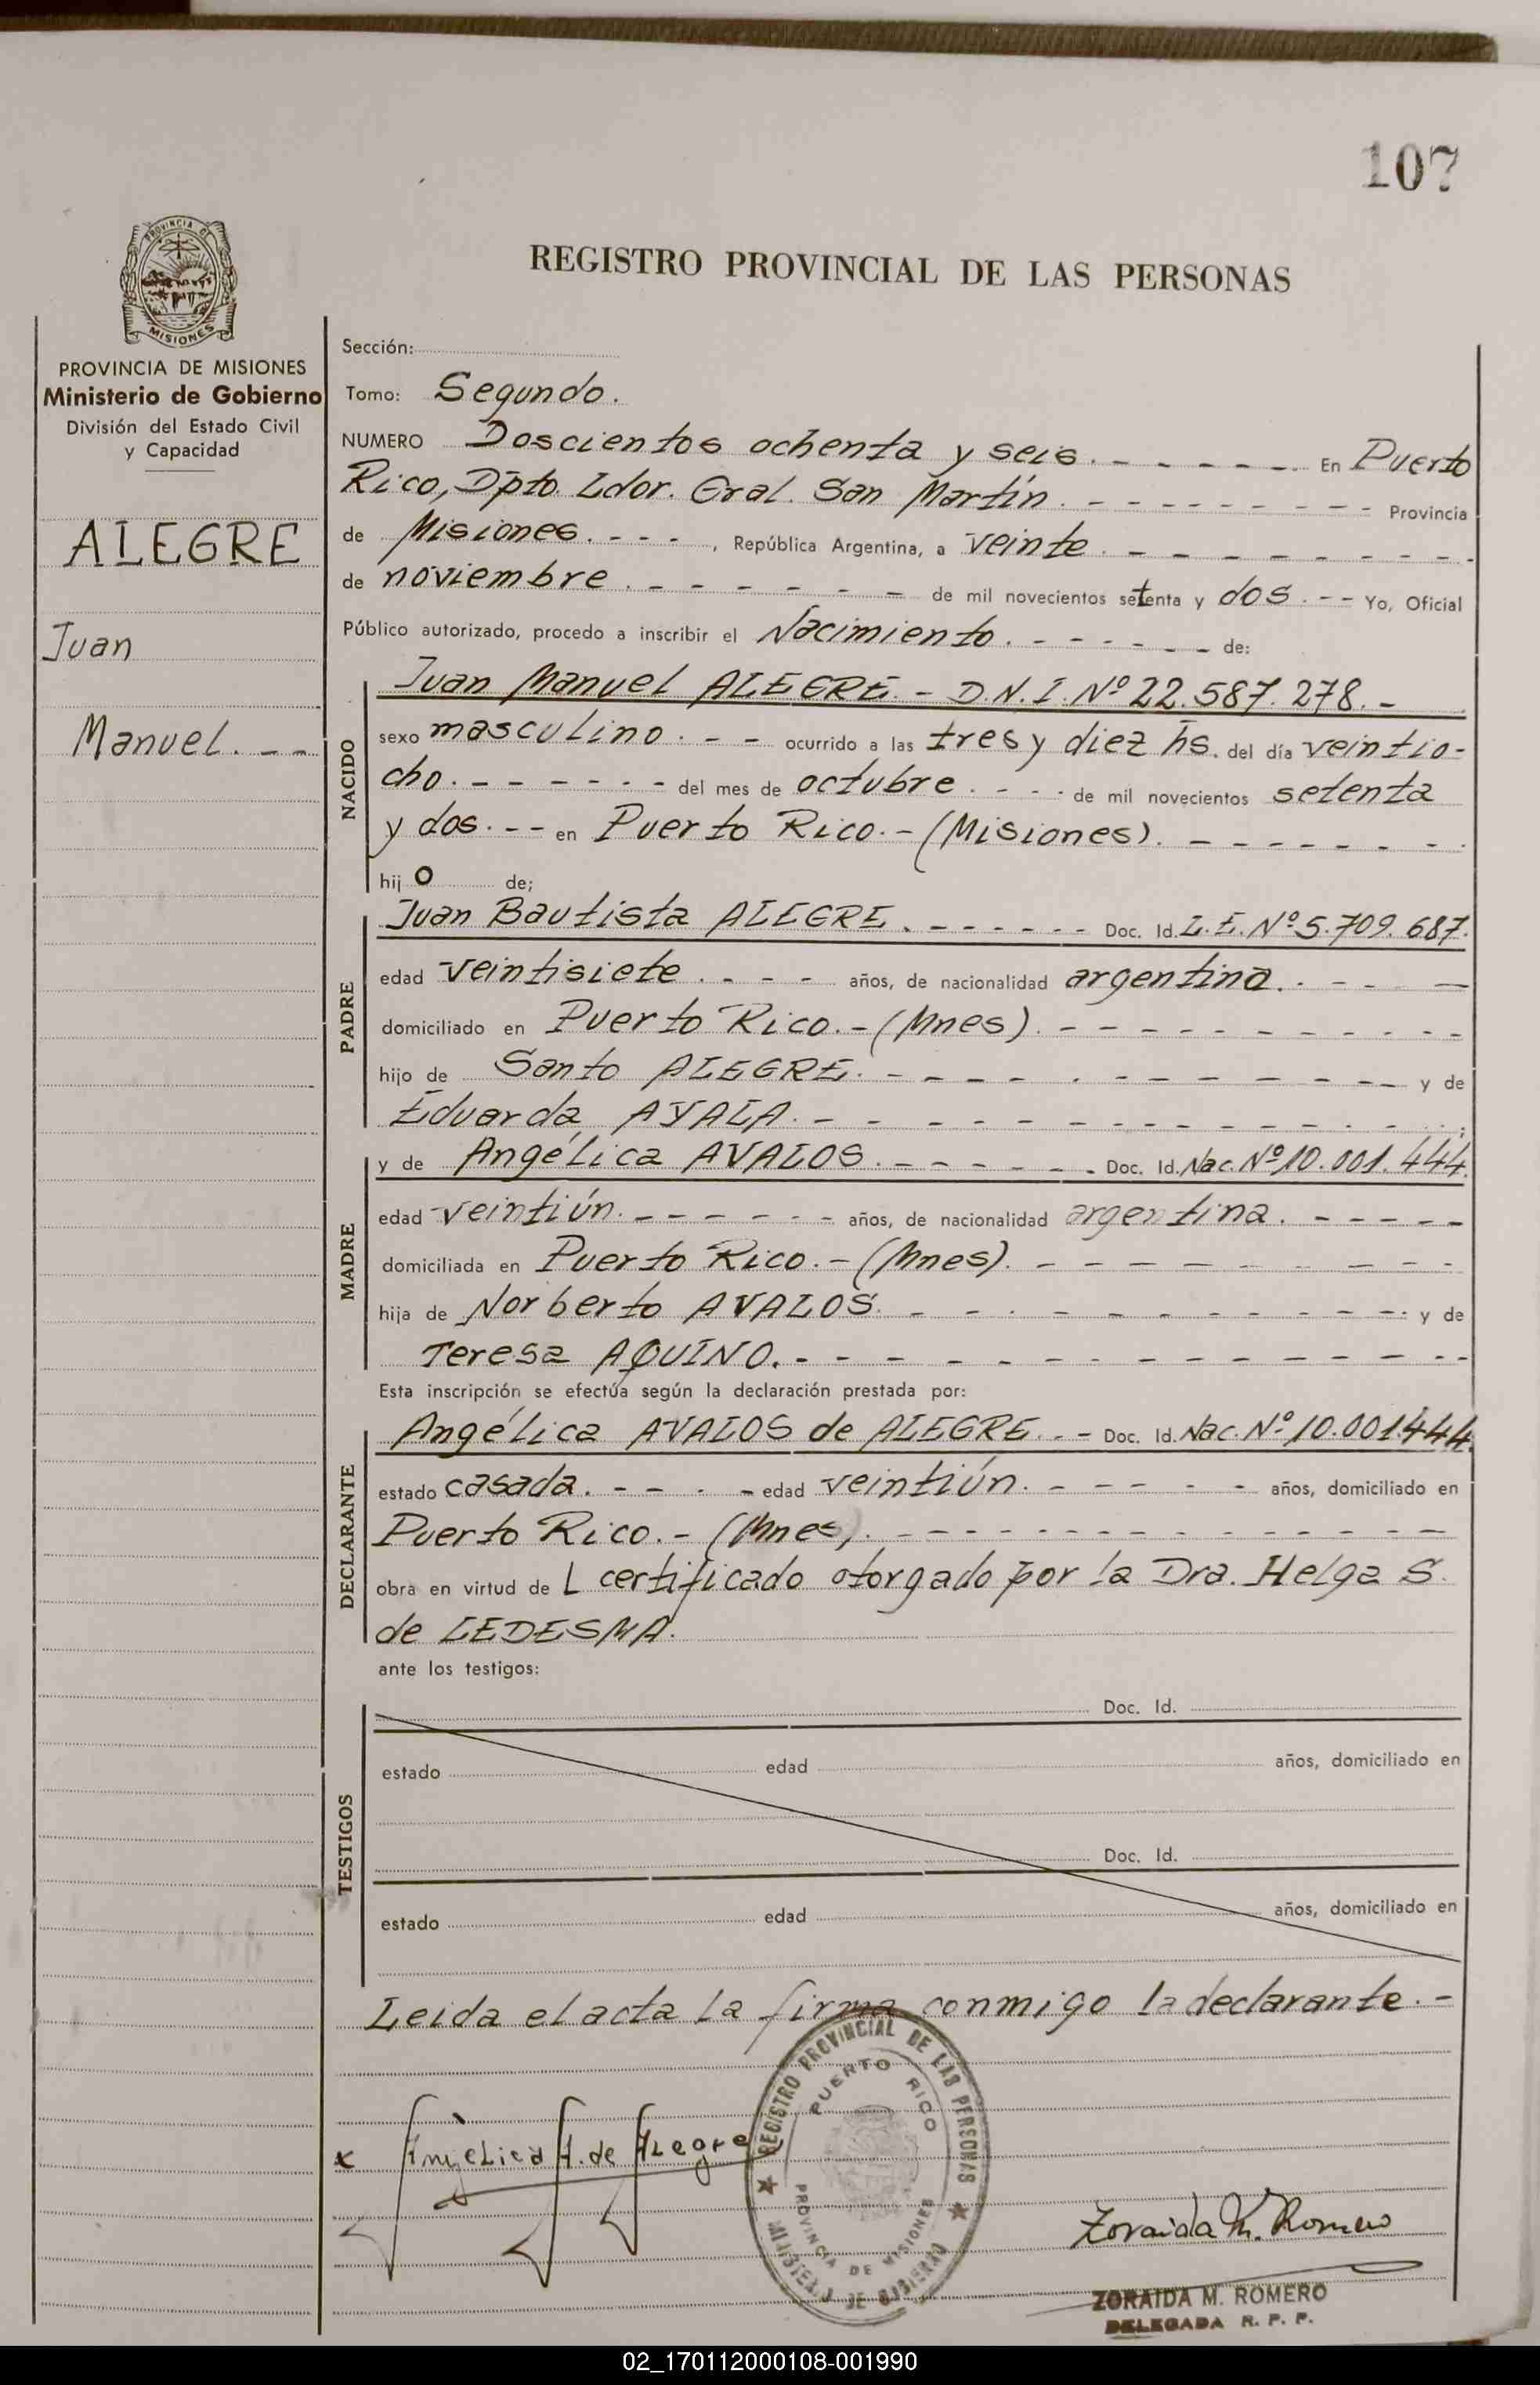 107
REGISTRO PROVINCIAL DE LAS PERSONAS
PROVINCIA DE MISIONES
Ministerio de Gobierno
División del Estado Civil
y Capacidad
ALEGRE
Juan
Manuel. - -
Sección:
Tomo: Segundo.
NUMERO Doscientos ochenta y seis. - - - - - - En Puerto
Rico, Dpto. Ldor. Gral. San Martín. - - - - - - - - - Provincia
de Misiones. - - - , República Argentina, a veinte. - - - - - - - -
de noviembre. - - - - - - de mil novecientos setenta y dos. - - Yo, Oficial
Público autorizado, procedo a inscribir el Nacimiento. - - - - - - de:
NACIDO
Juan Manuel ALEGRE. - D.N.I. Nº 22.587.278. -
sexo masculino. - - ocurrido a las tres y diez hs. del día veintio-
cho. - - - - - - del mes de octubre. - - - de mil novecientos setenta
y dos. - - en Puerto Rico. - (Misiones). - - - - - - -
hij o de;
PADRE
Juan Bautista ALEGRE. - - - - - - Doc. Id. L.E. Nº 5.709.687.
edad veintisiete. - - - años, de nacionalidad argentina. - - - -
domiciliado en Puerto Rico. - (Mnes). - - - - - - - - - -
hijo de Santo ALEGRE. - - - - - - - - - - - y de
Eduarda AYALA. - - - - - - - - - - - - ;
MADRE
y de Angélica AVALOS. - - - - - - Doc. Id. Nac. Nº 10.001.444.
edad veintiún. - - - - - - años, de nacionalidad argentina. - - - - -
domiciliada en Puerto Rico. - (Mnes). - - - - - - - - - -
hija de Norberto AVALOS. - - - - - - - - - - - y de
Teresa AQUINO. - - - - - - - - - - - - -
Esta inscripción se efectúa según la declaración prestada por:
DECLARANTE
Angélica AVALOS de ALEGRE. - - Doc. Id. Nac. Nº 10.001.444.
estado casada. - - - - edad veintiún. - - - - - - años, domiciliado en
Puerto Rico. - (Mnes). - - - - - - - - - - - - -
obra en virtud de l certificado otorgado por la Dra. Helga S.
de LEDESMA.
ante los testigos:
TESTIGOS
Doc. Id.
estado edad años, domiciliado en
Doc. Id.
estado edad años, domiciliado en
Leida el acta la firma conmigo la declarante. -
REGISTRO PROVINCIAL DE LAS PERSONAS
PUERTO RICO
PROVINCIA DE MISIONES
MINISTERIO DE GOBIERNO
x Anjelica A. de Alegre
Zoraida M. Romero
ZORAIDA M. ROMERO
DELEGADA R. P. P.
02_170112000108-001990